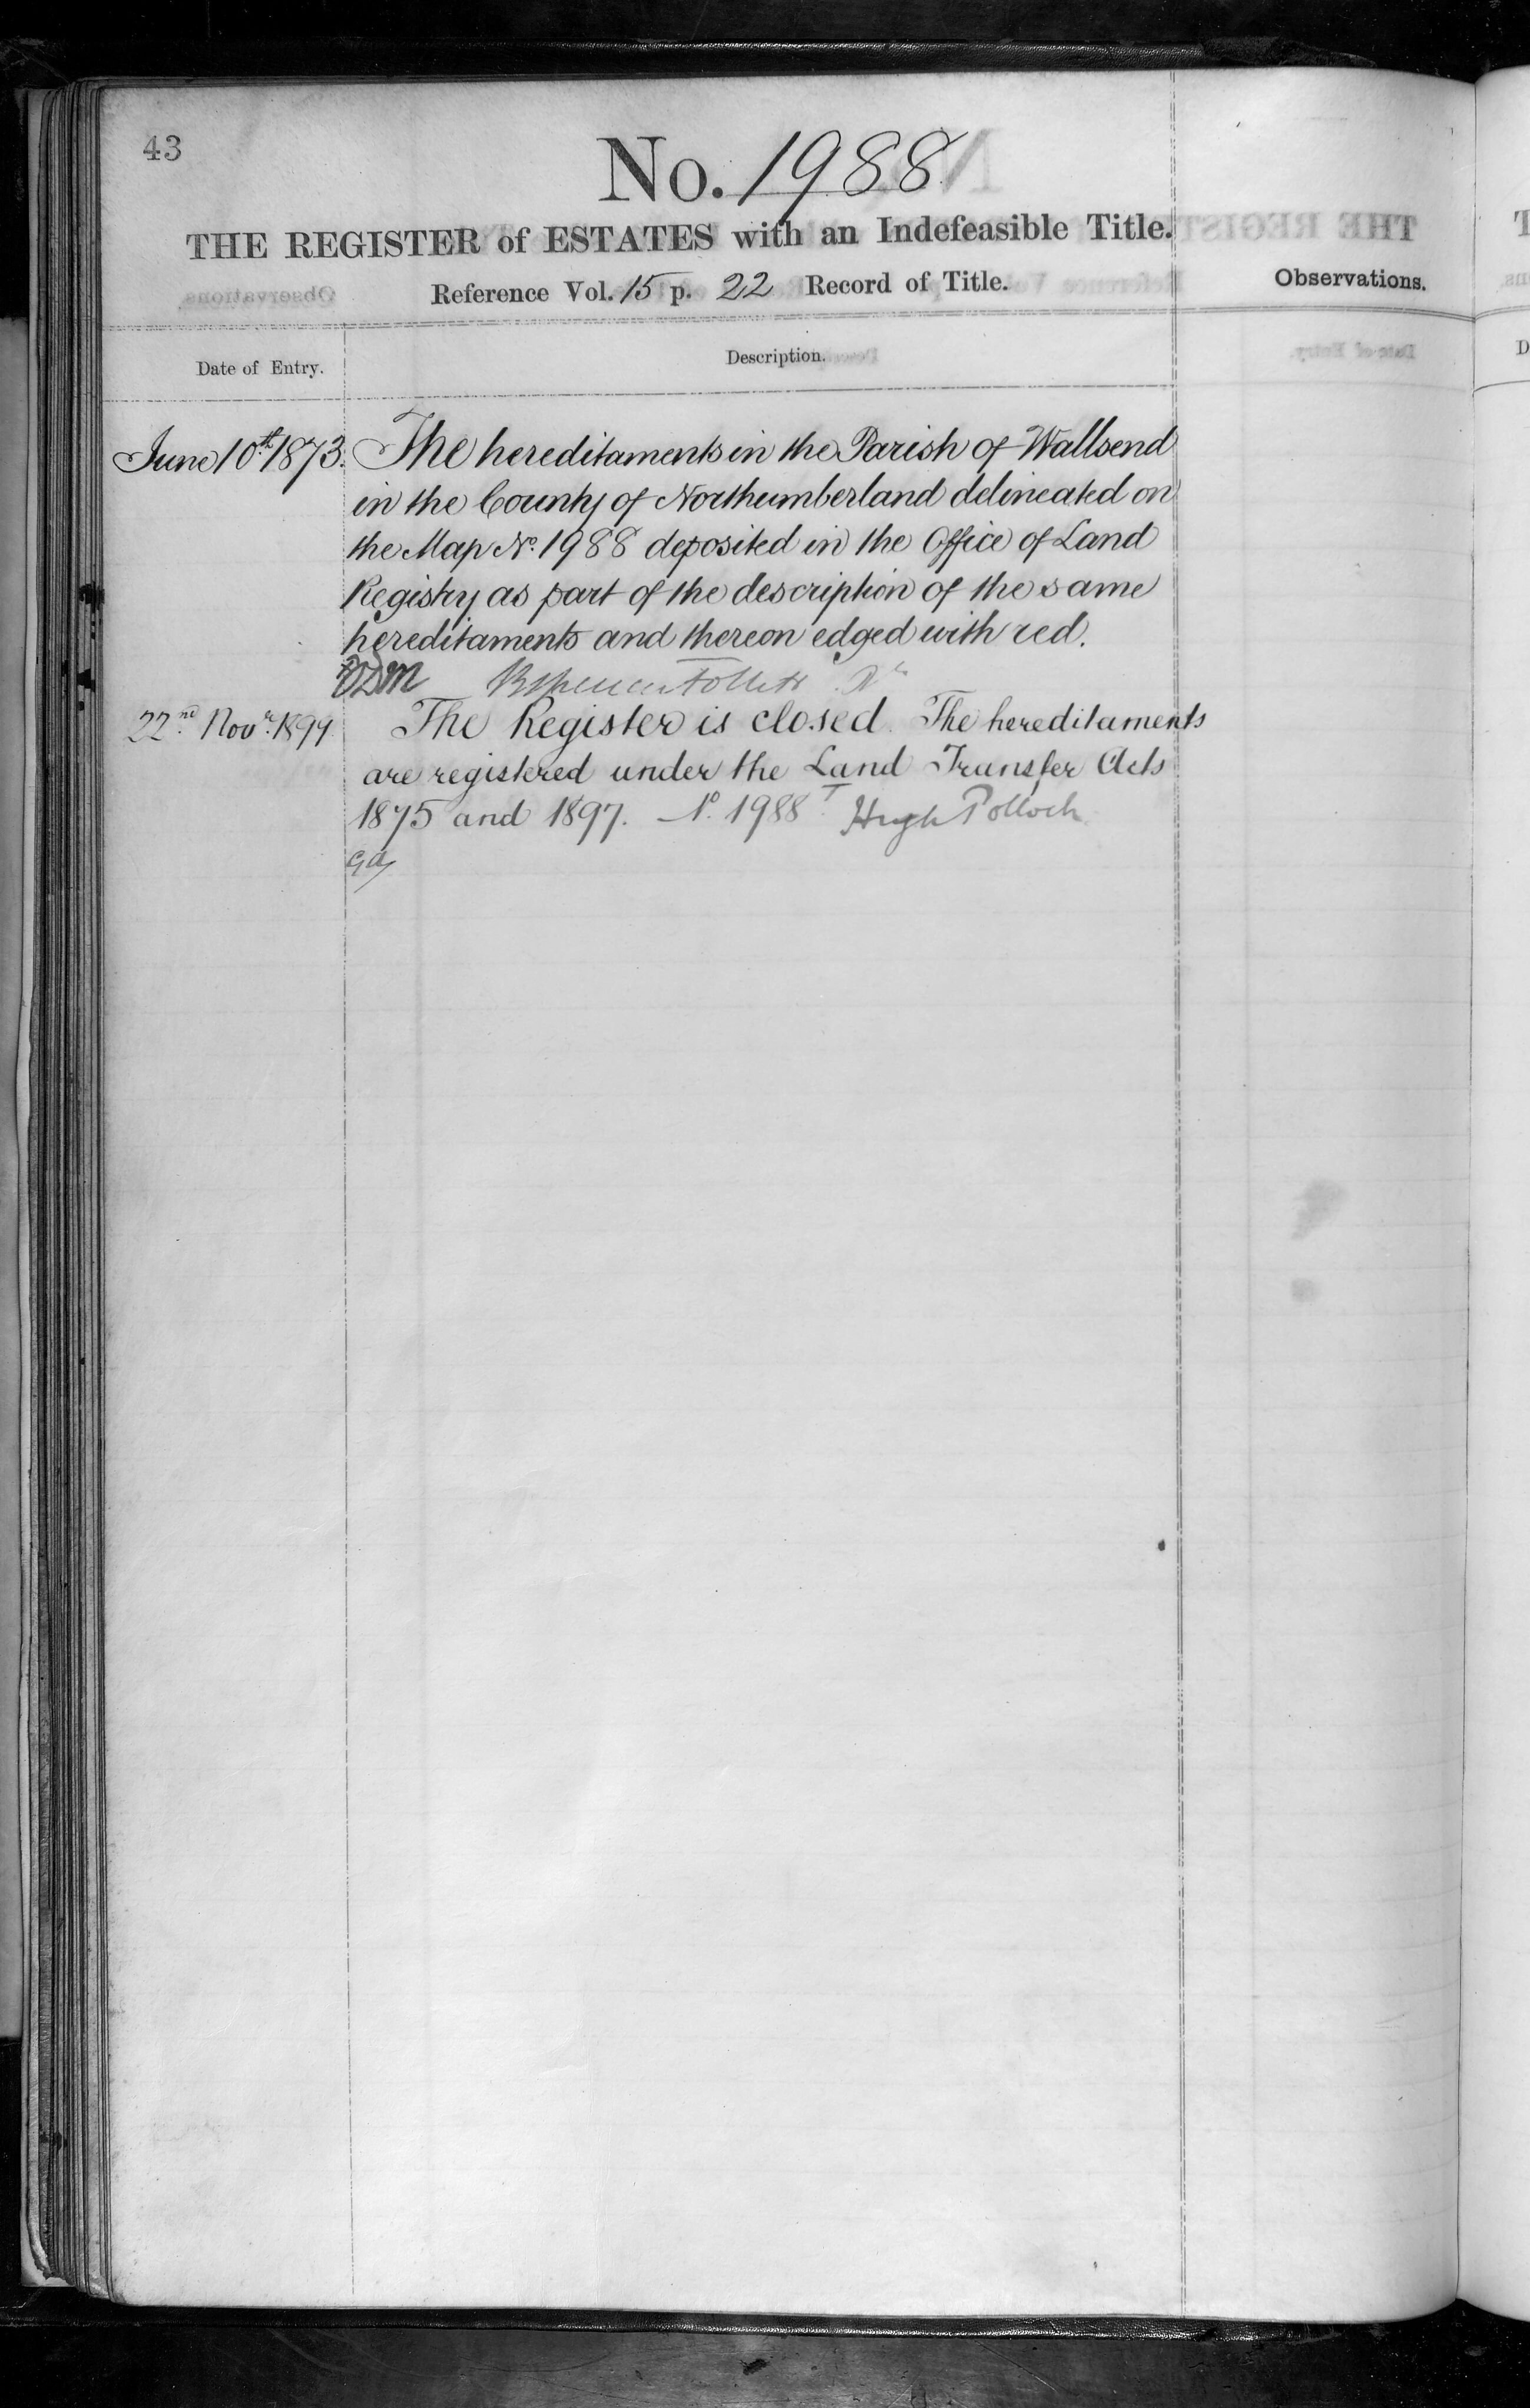 43
No. 1988
THE REGISTER of ESTATES with an Indefeasible Title.
Reference Vol. 15 p. 22 Record of Title.
Observations.
Date of Entry.
Description.
June 10th 1873. The hereditaments in the Parish of Wallsend
in the County of Northumberland delineated on
the Map No. 1988 deposited in the Office of Land
Registry as part of the description of the same
hereditaments and thereon edged with red.
Follett
22nd Novr. 1899 The Register is closed. The hereditaments
are registered under the Land Transfer Acts
1875 and 1897. No. 1988 Hugh Pollock